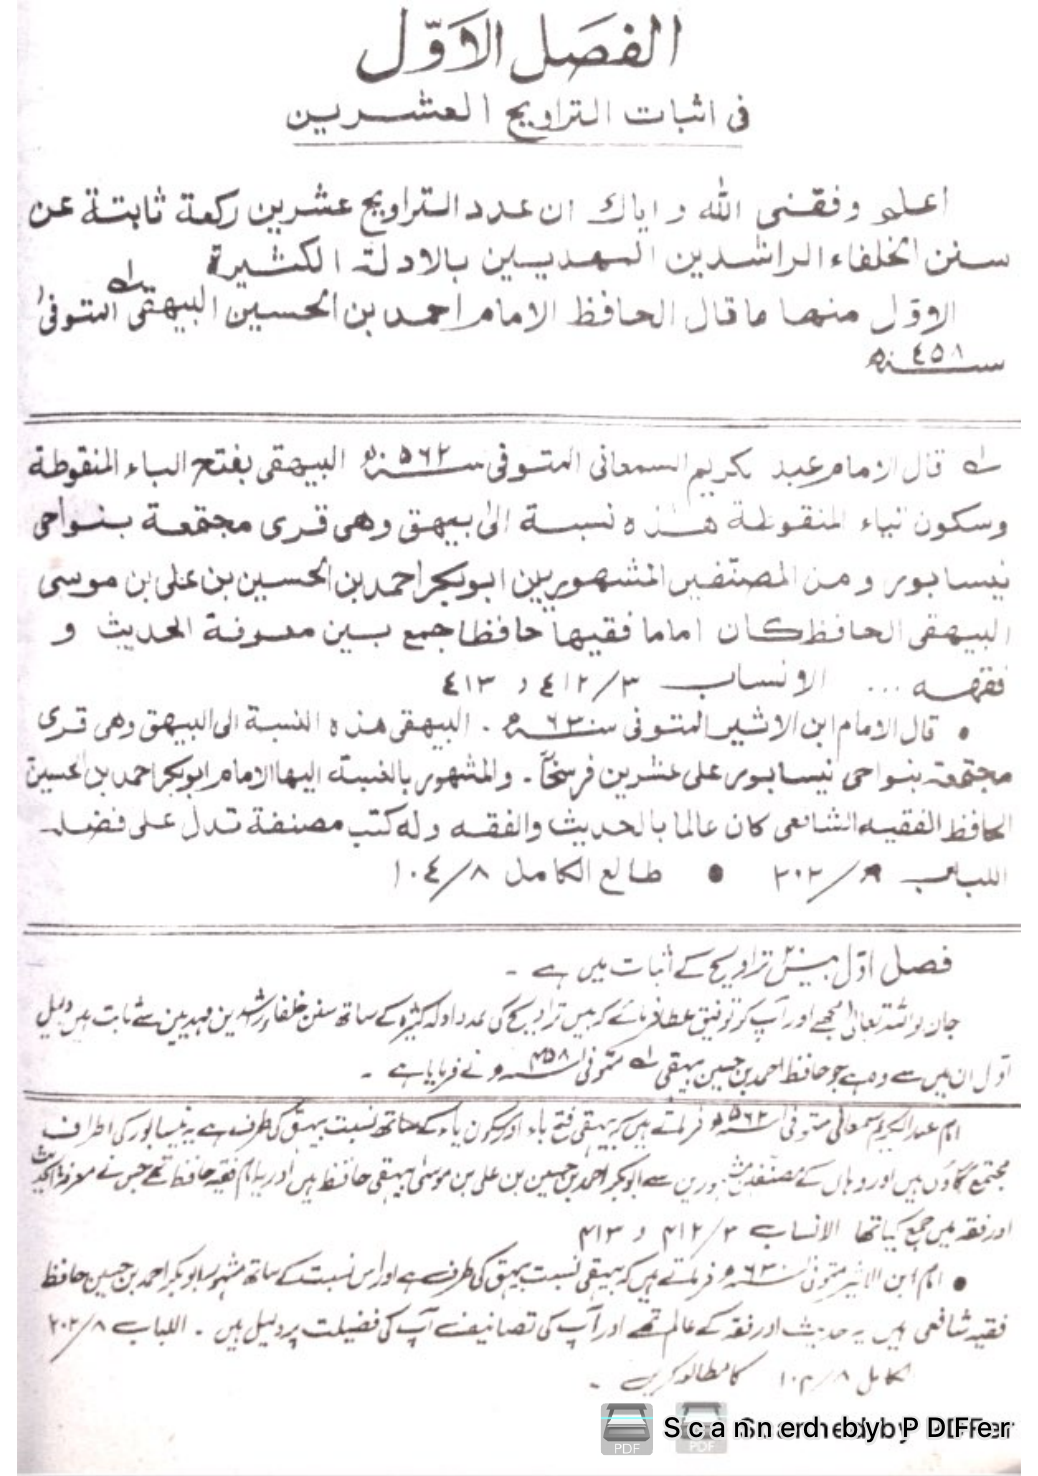 الفصل الاوّل
فى اثبات التراويح العشرين
اعلم وفقنى الله واياك ان عدد التراويح عشرين ركعة ثابتة عن
سنن الخلفاء الراشدين المهديين بالادلة الكثيرة
الاوّل منها ما قال الحافظ الامام احمد بن الحسين البيهقى ١ـه المتوفى
سنة ٤٥٨ه
١ـه قال الامام عبد بكريم السمعانى المتوفى سنة ٥٦٢ه البيهقى بفتح الباء المنقوطة
وسكون الياء المنقوطة هذه نسبة الى بيهق وهى قرى مجتمعة بنواحى
نيسابور ومن المصنّفين المشهورين ابوبكر احمد بن الحسين بن على بن موسى
البيهقى الحافظ كان اماما فقيها حافظا جمع بين معرفة الحديث و
فقهه ... الانساب ٤١٢/٣ و ٤١٣
• قال الامام ابن الاثير المتوفى سنة ٦٣٠ه . البيهقى هذه النسبة الى البيهق وهى قرى
مجتمعة بنواحى نيسابور على عشرين فرسخاً . والمشهور بالنسبة اليها الامام ابوبكر احمد بن الحسين
الحافظ الفقيه الشافعى كان عالما بالحديث والفقه وله كتب مصنفة تدل على فضله
اللباب ٢٠٢/٨ • طالع الكامل ١٠٤/٨
فصل اوّل بیس ۲۰ تراویح کے اثبات میں ہے ۔
جان تو اللہ تعالیٰ مجھے اور آپ کو توفیق عطا فرمائے کہ بیس تراویح کی عدد ادلہ کثیرہ کے ساتھ سنن خلفاء راشدین مہدیین سے ثابت ہیں دلیل
اوّل ان میں سے وہ ہے جو حافظ احمد بن حسین بیہقی ١ـه متوفیٰ سنہ ۴۵۸ھ نے فرمایا ہے ۔
امام عبدالکریم سمعانی متوفیٰ سنہ ۵۶۲ھ فرماتے ہیں کہ بیہقی فتح باء اور سکون یاء کے ساتھ نسبت بیہق کی طرف ہے یہ نیسابور کی اطراف
مجتمع گاؤں ہیں اور وہاں کے مصنّفین مشہورین سے ابوبکر احمد بن حسین بن علی بن موسیٰ بیہقی حافظ ہیں اور یہ امام فقیہ حافظ تھے جس نے معرفۃ الحدیث
اور فقہ میں جمع کیا تھا الانساب ۴۱۲/۳ و ۴۱۳
• امام ابن الاثیر متوفیٰ سنہ ۶۳۰ھ فرماتے ہیں کہ بیہقی نسبت بیہق کی طرف ہے اور اس نسبت کے ساتھ مشہور ابوبکر احمد بن حسین حافظ
فقیہ شافعی ہیں یہ حدیث اور فقہ کے عالم تھے اور آپ کی تصانیف آپ کی فضیلت پر دلیل ہیں ۔ اللباب ۲۰۲/۸
کامل ۱۰۴/۸ کا مطالعہ کریں ۔
Scanned by PDFFer